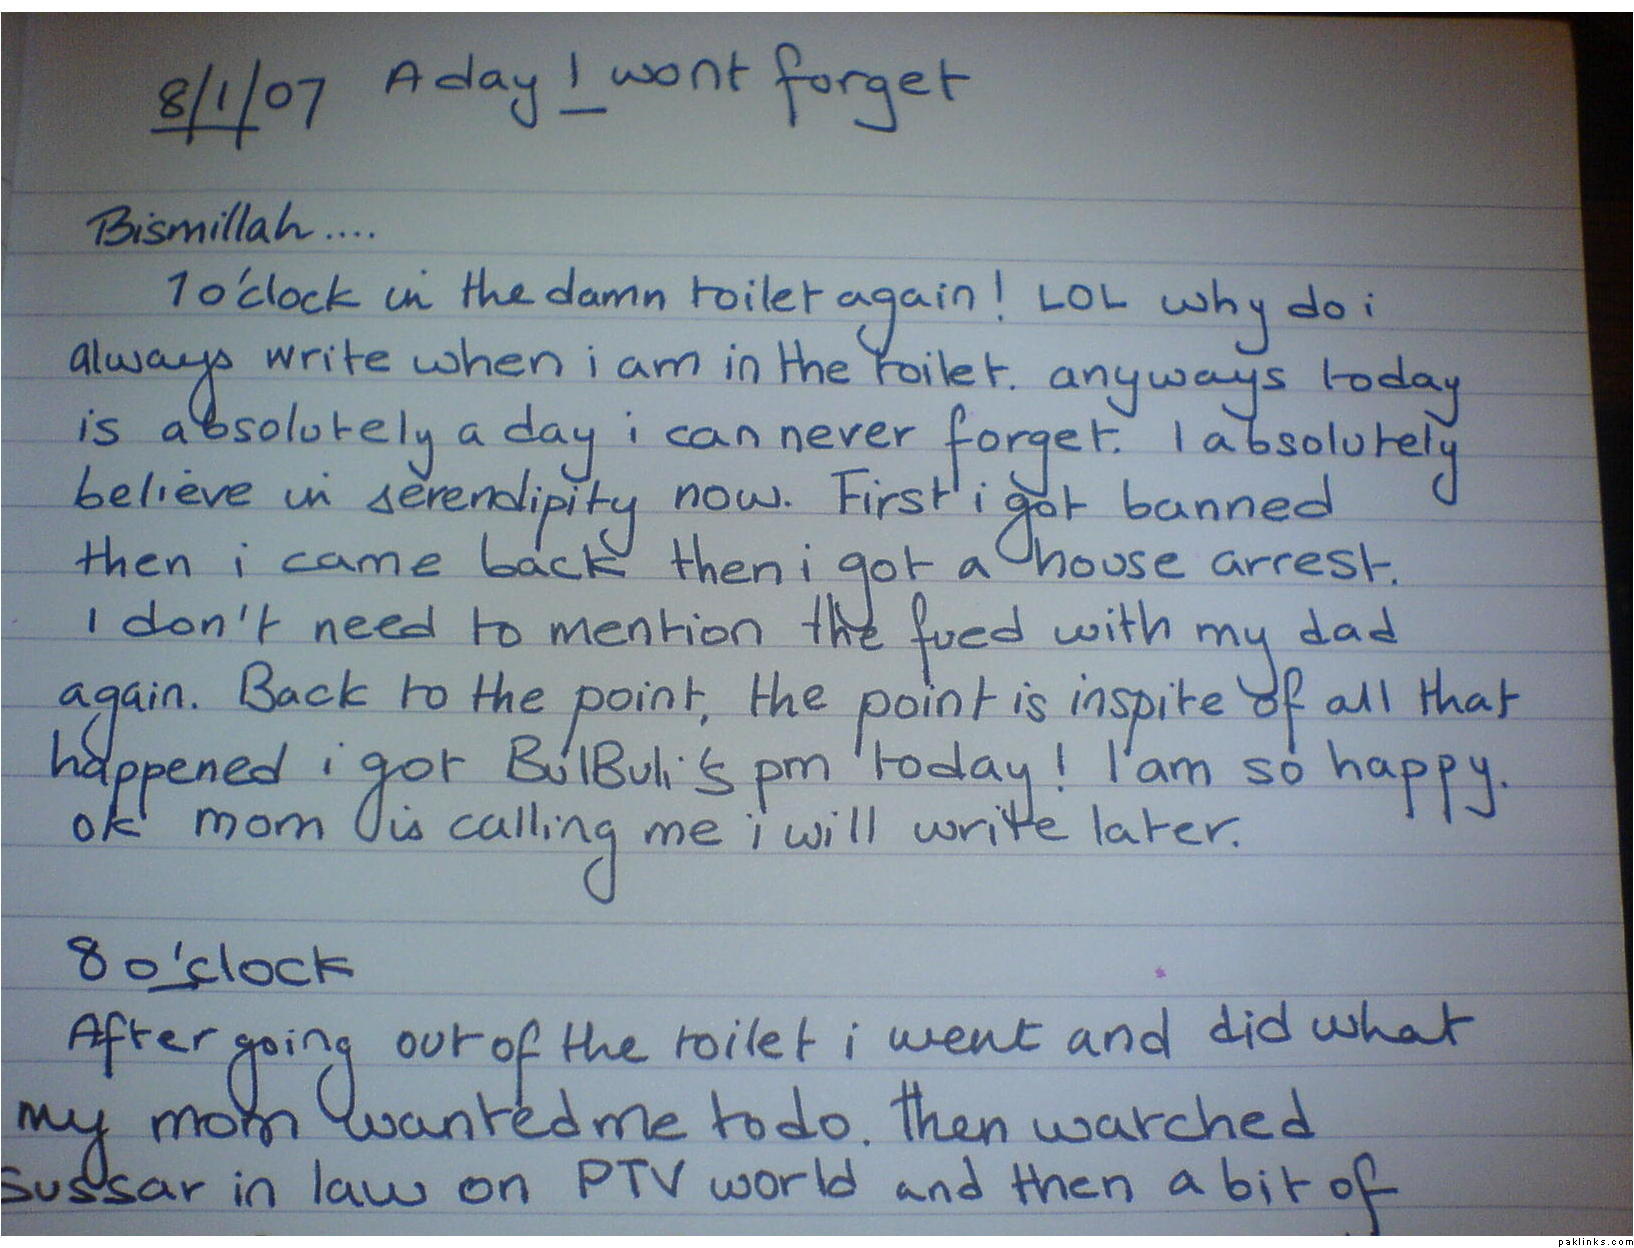 8/1/07 A day I wont forget
Bismillah....
1 o'clock in the damn toilet again! LOL why do i
always write when i am in the toilet. anyways today
is absolutely a day i can never forget. I absolutely
believe in serendipity now. First i got banned
then i came back then i got a house arrest.
I don't need to mention the fued with my dad
again. Back to the point, the point is inspite of all that
happened i got BulBuli's pm today! I'am so happy.
ok mom is calling me i will write later.
8 o'clock
After going out of the toilet i went and did what
my mom wanted me to do. then watched
sussar in law on PTV world and then a bit of
paklinks.com